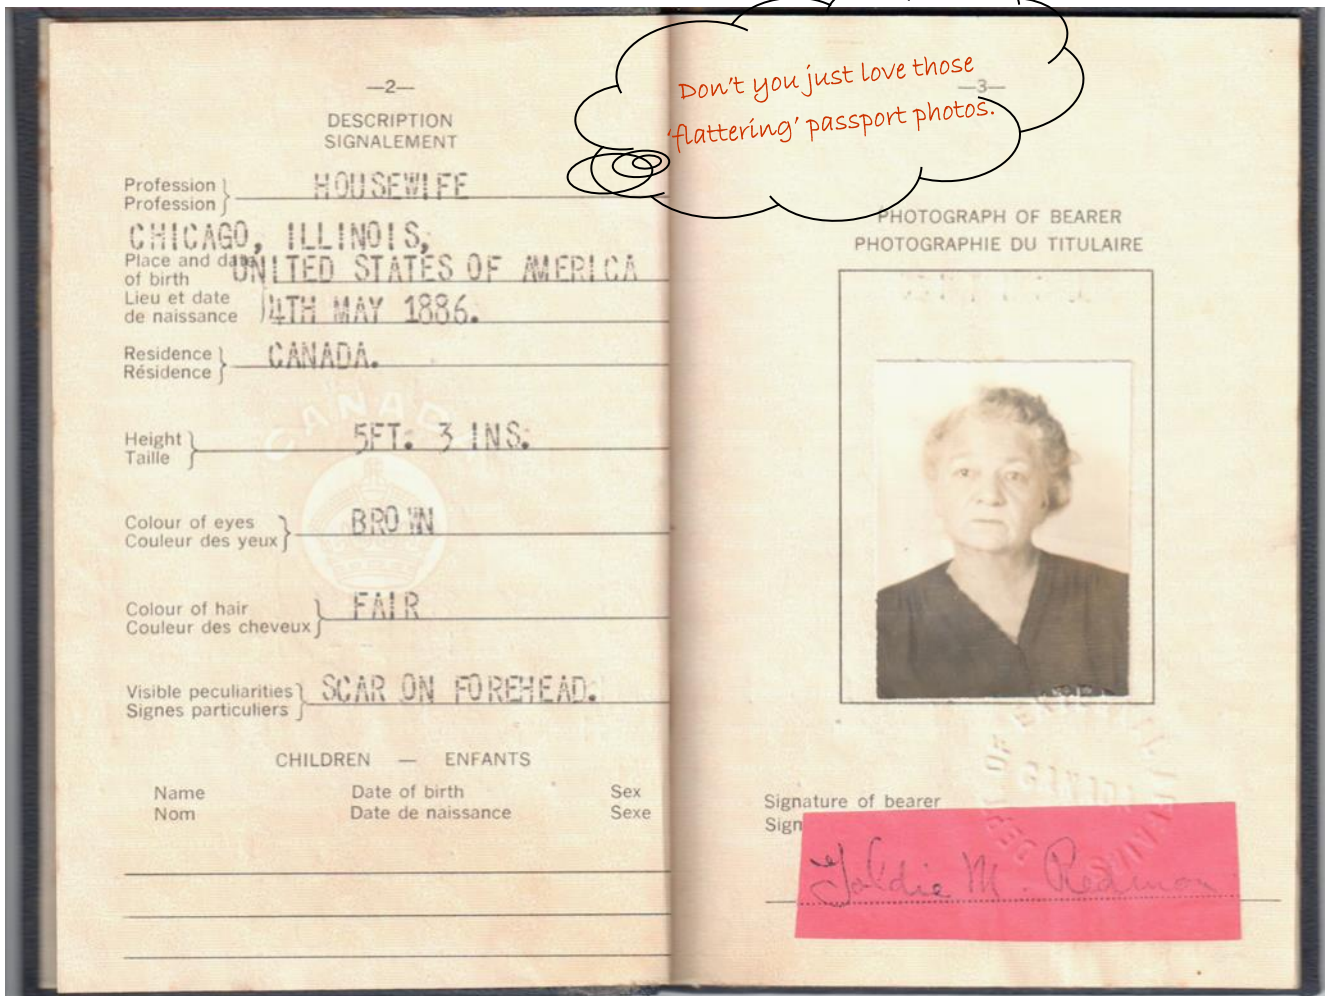 —2—
DESCRIPTION
SIGNALEMENT
Profession
Profession
HOUSEWIFE
CHICAGO, ILLINOIS,
Place and date
of birth
UNITED STATES OF AMERICA
Lieu et date
de naissance
4TH MAY 1886.
Residence
Résidence
CANADA.
CANADA
Height
Taille
5FT. 3 INS.
Colour of eyes
Couleur des yeux
BROWN
Colour of hair
Couleur des cheveux
FAIR
Visible peculiarities
Signes particuliers
SCAR ON FOREHEAD.
CHILDREN — ENFANTS
Name Date of birth Sex
Nom Date de naissance Sexe
Don't you just love those
'flattering' passport photos.
—3—
PHOTOGRAPH OF BEARER
PHOTOGRAPHIE DU TITULAIRE
OF EXTERNAL
CANADA
Signature of bearer
Sign
Goldie M. Redmon